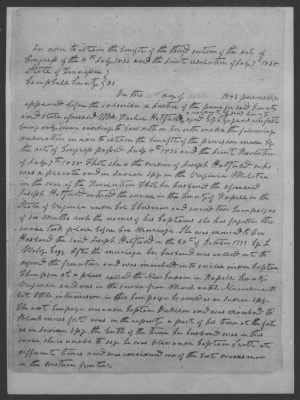 In order to obtain the benefit of the third section of the act of
Congress of the 4th July 1836 and the joint resolution of July 7th 1838
State of Tennessee }
Campbell County } SS
On this day of 1843 personally
appeared before the subscriber a Justice of the peace for said County
and State aforesaid Mrs Rachel Hatfield a resident of said County
aged years who first
being duly sworn according to law doth on her oath make the following
declaration in order to obtain the benefit of the provision made by
the act of Congress passed July 4th 1836 and the Joint Resolution
of July 7th 1838 That she is the widow of Joseph Hatfield who
was a private and an Indian spy in the Virginia Militia
in the war of the Revolution That her husband the aforesaid
Joseph Hatfield entered the service in the County of Russell in the
State of Virginia under Col and served two Campaigns
of six Months each the names of his Captains she has forgotten this
service took place before her Marriage. She was married to her
Husband the said Joseph Hatfield on the of October 1779 by
Esq. after the marriage her husband was called out to
defend the frontier and was marched into service under Captain
Thompson at a place called the New Garden in Russell County
Virginia and was in the service from March until
last. While in service in this Campaign he served as an Indian spy.
The next Campaign was under Captain Dickison and was marched to
Blackmores fort was in the capacity a part of his time at the fort
as an Indian spy. The length of the time her husband was in this
service she is unable to say he was also under Captain Smith at
different times and was considered one of the best woodsmen
in the Western frontier